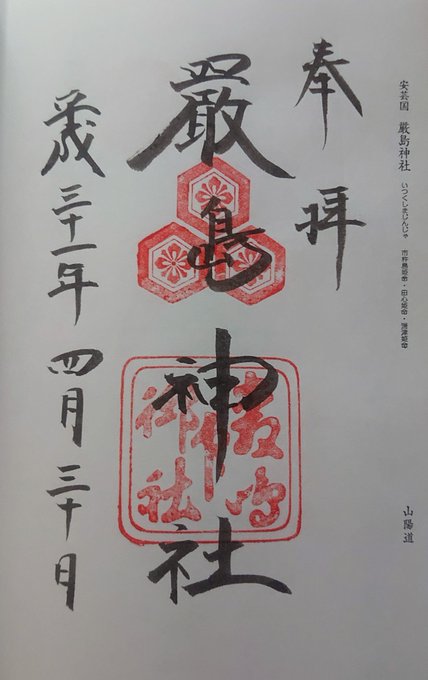 安芸国 厳島神社 いつくしまじんじゃ 市杵島姫命・田心姫命・湍津姫命
山陽道
奉拝
厳島神社
平成三十一年四月三十日